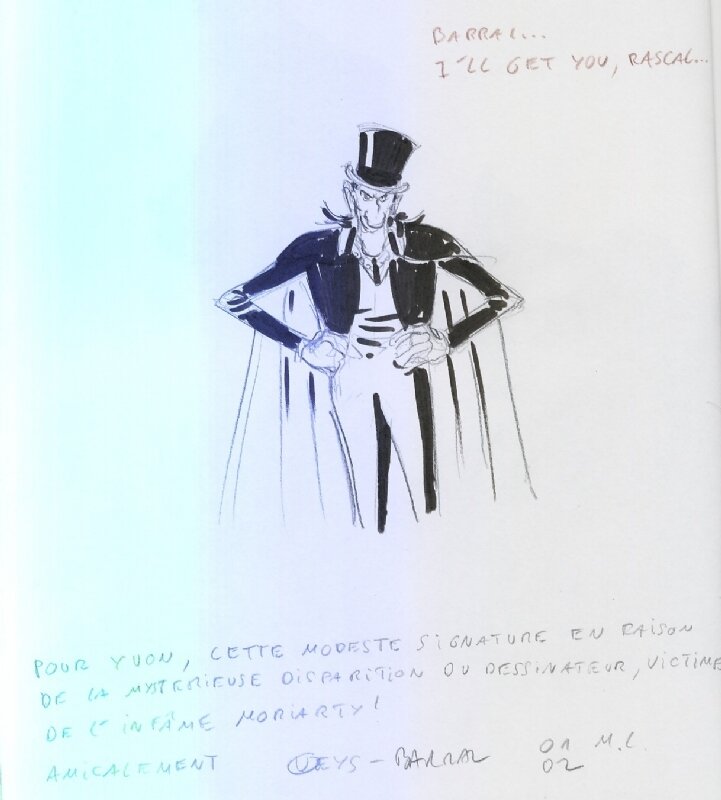 BARRAL...
I'LL GET YOU, RASCAL...
POUR YVON, CETTE MODESTE SIGNATURE EN RAISON
DE LA MYSTERIEUSE DISPARITION DU DESSINATEUR, VICTIME
DE L'INFÂME MORIARTY!
AMICALEMENT VEYS-BARRAL 01 M.L.
02